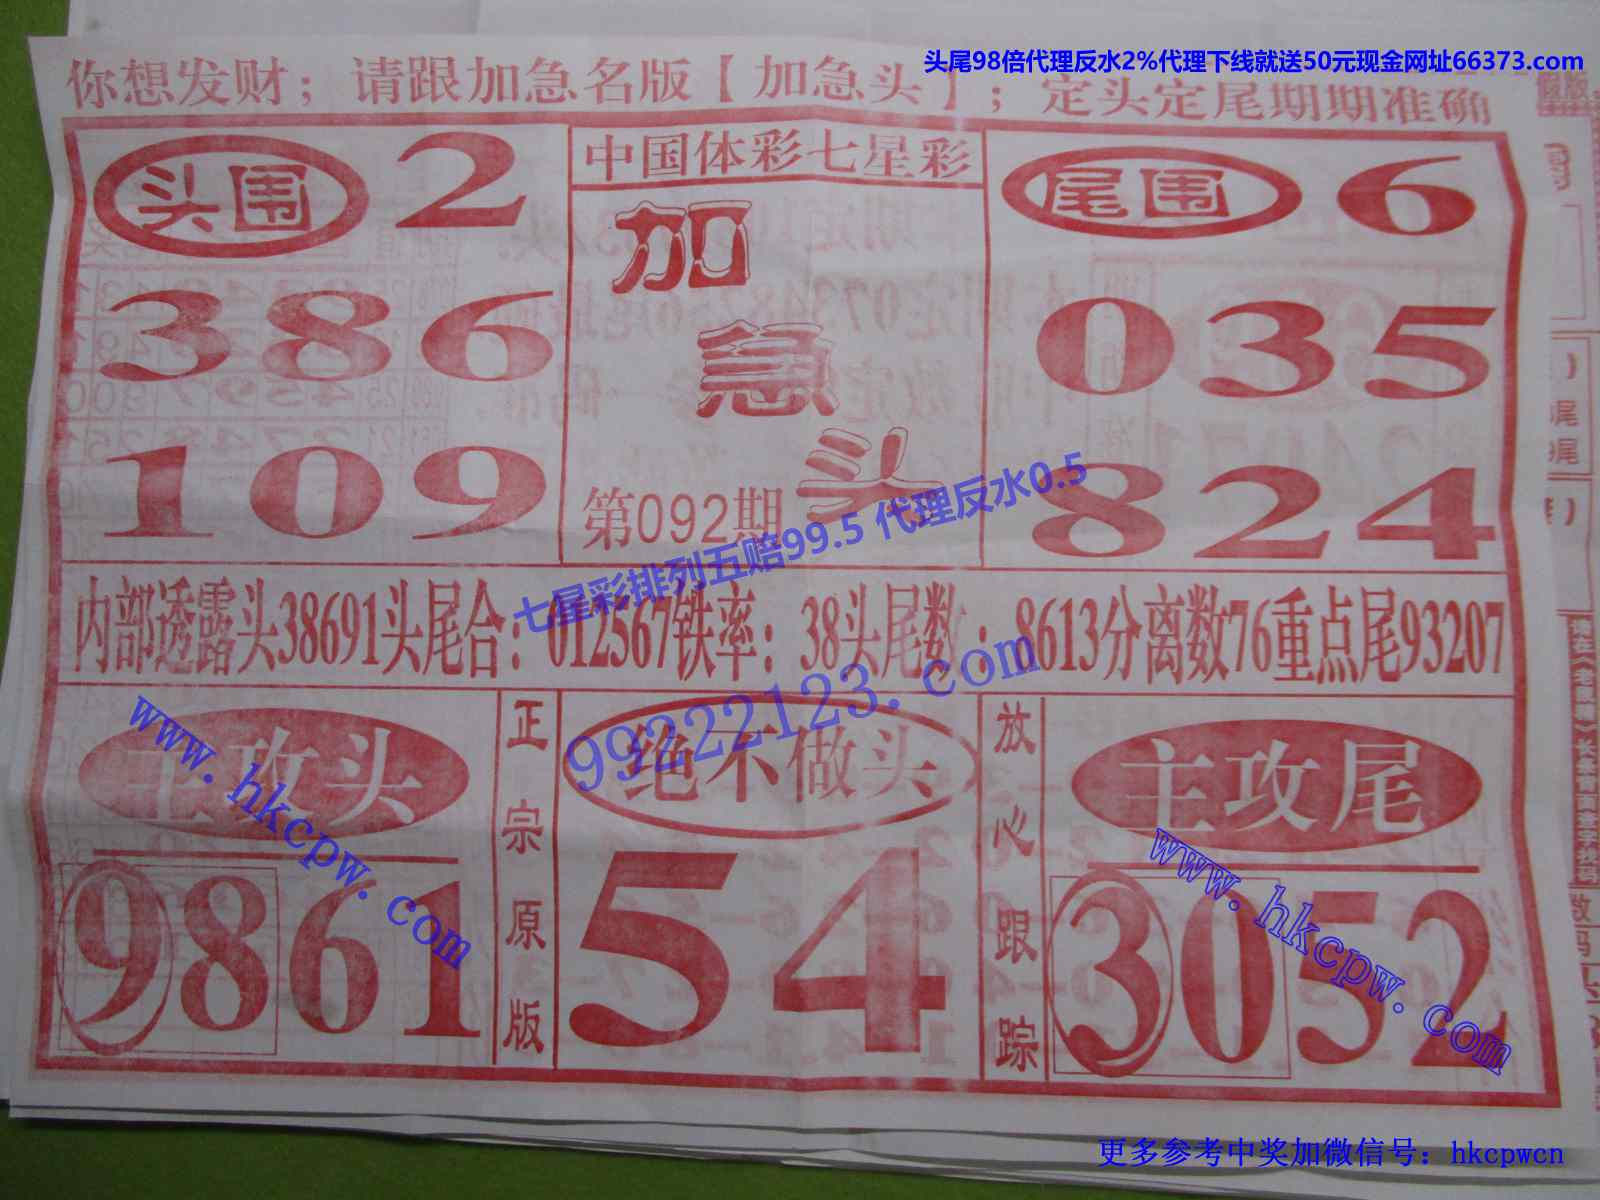 头尾98倍代理反水2%代理下线就送50元现金网址66373.com
你想发财；请跟加急名版【加急头】；定头定尾期期准确
头围 2
386
109
中国体彩七星彩
加
急
头
第092期
尾围 6
035
824
七星彩排列五赔99.5 代理反水0.5
内部透露头38691头尾合：012567铁率：38头尾数：8613分离数76重点尾93207
99222123.com
主攻头
9861
www.hkcpw.com
正宗原版
绝不做头
54
放心跟踪
主攻尾
3052
www.hkcpw.com
更多参考中奖加微信号：hkcpwcn